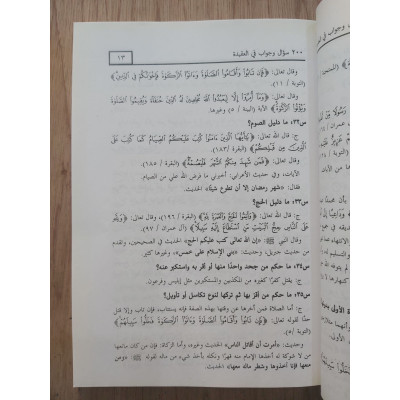 ٢٠٠ سؤال وجواب في العقيدة
١٣
وقال تعالى: ﴿فَإِن تَابُوا وَأَقَامُوا الصَّلَوٰةَ وَءَاتَوُا الزَّكَوٰةَ فَإِخْوَٰنُكُمْ فِي الدِّينِ﴾
(التوبة / ١١).
وقال تعالى: ﴿وَمَا أُمِرُوا إِلَّا لِيَعْبُدُوا اللَّهَ مُخْلِصِينَ لَهُ الدِّينَ حُنَفَاءَ وَيُقِيمُوا الصَّلَوٰةَ
وَيُؤْتُوا الزَّكَوٰةَ﴾ الآية (البينة / ٥)، وغيرها.
س٣٢: ما دليل الصوم؟
ج: قال الله تعالى: ﴿يَٰأَيُّهَا الَّذِينَ ءَامَنُوا كُتِبَ عَلَيْكُمُ الصِّيَامُ كَمَا كُتِبَ عَلَى
الَّذِينَ مِن قَبْلِكُمْ﴾ (البقرة / ١٨٣).
وقال تعالى: ﴿فَمَن شَهِدَ مِنكُمُ الشَّهْرَ فَلْيَصُمْهُ﴾ (البقرة / ١٨٥)
الآيات، وفي حديث الأعرابي: أخبرني ما فرض الله علي من الصيام
فقال: «شهر رمضان إلا أن تطوع شيئا» الحديث.
س٣٣: ما دليل الحج؟
ج: قال الله تعالى: ﴿وَأَتِمُّوا الْحَجَّ وَالْعُمْرَةَ لِلَّهِ﴾ (البقرة / ١٩٦)، وقال تعالى: ﴿وَلِلَّهِ
عَلَى النَّاسِ حِجُّ الْبَيْتِ مَنِ اسْتَطَاعَ إِلَيْهِ سَبِيلًا﴾ (آل عمران / ٩٧)
وقال النبي ﷺ: «إن الله تعالى كتب عليكم الحج» الحديث في الصحيحين، وتقدم
من حديث جبريل، وحديث: «بني الإسلام على خمس»، وغيرها كثير
س٣٤: ما حكم من جحد واحدًا منها أو أقر به واستكبر عنه؟
ج: يقتل كفرًا كغيره من المكذبين والمستكبرين مثل إبليس وفرعون.
س٣٥: ما حكم من أقرّ بها ثم تركها لنوع تكاسل أو تأويل؟
ج: أما الصلاة فمن أخرها عن وقتها بهذه الصفة فإنه يستتاب، فإن تاب وإلا قتل
حدًّا لقوله تعالى: ﴿فَإِن تَابُوا وَأَقَامُوا الصَّلَوٰةَ وَءَاتَوُا الزَّكَوٰةَ فَخَلُّوا سَبِيلَهُمْ﴾
(التوبة / ٥).
وحديث: «أمرت أن أقاتل الناس» الحديث وغيره، وأما الزكاة: فإن كان مانعها
من لا شوكة له أخذها الإمام منه قهرًا ونكله بأخذ شيء من ماله لقوله ﷺ: «ومن
منعها فإنا آخذوها وشطر ماله معها» الحديث.